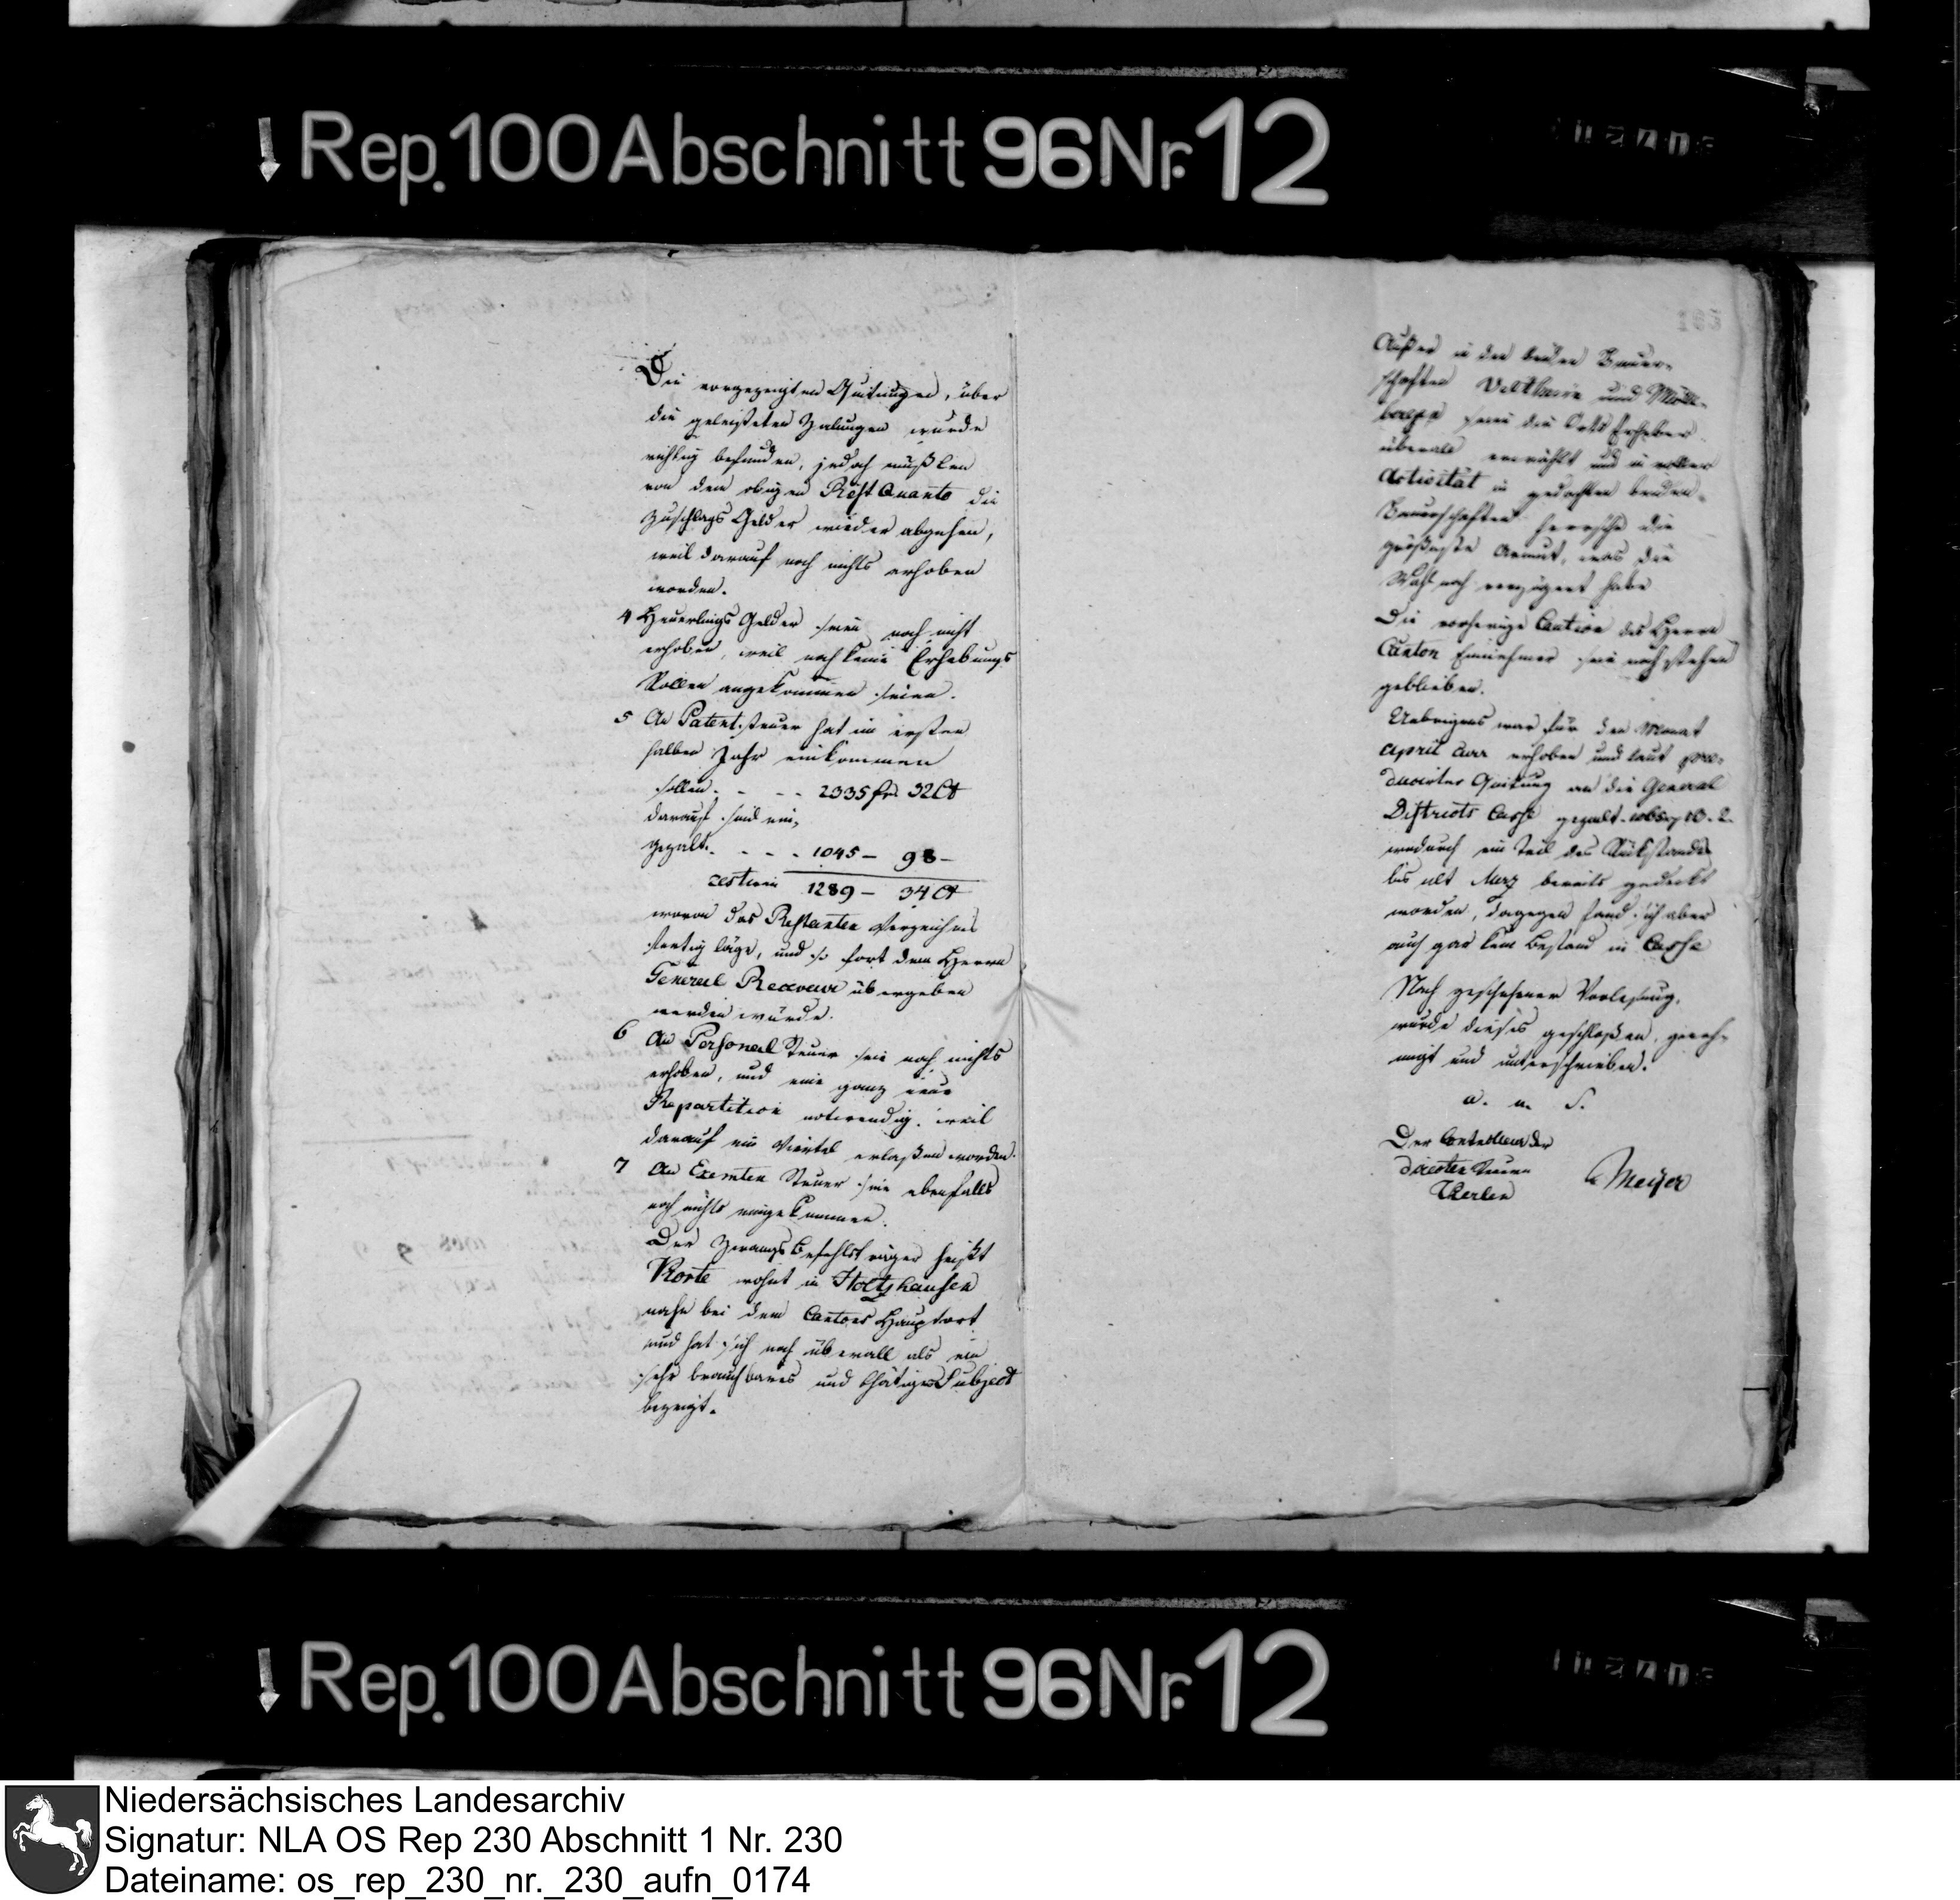 Rep. 100 Abschnitt 96 Nr. 12
Die vorgezeigten Quitungen, über
die geleisteten Zalungen wurde
richtig befunden, jedoch müßten
von dem obigen Rest Quanto die
Zuschlags Gelder wieder abgehen,
weil darauf noch nichts erhoben
worden.
4 Heuerlings Gelder seien noch nicht
erhoben, weil noch keine Erhebungs
Rollen angekommen seien.
5 An Patentsteuer hat im ersten
halben Jahr einkommen
sollen. - - - 2335 frs 32 Ct
darauf sind ein-
gezalt. - - - - 1045 - 98 -
restiren 1289 - 34 Ct
wovon das Restanten Verzeichnis
fertig läge, und so fort dem Herrn
General Receveur übergeben
werden würde.
6 An Personal Steuer sei noch nichts
erhoben, und eine ganz neue
Repartition notwendig, weil
darauf ein Viertel erlaßen worden.
7 An Exemten Steuer sei ebenfalls
noch nichts eingekommen.
Der Zwangsbefehlsträger heißt
Korte wohnt in Holtzhausen
nahe bei dem Cantons Hauptort
und hat sich noch überall als ein
sehr brauchbares und thätiges Subject
bezeigt.
Außer in den beiden Bauer-
schaften Veltheim und Möll-
bergen seien die Orts Erheber
überall erwählt und in voller
Activität in gedachten beiden
Bauerschaften herrsche die
größeste Armut, was die
Wahl noch verzögert habe
Die vorherige Caution des Herrn
Canton Einnehmer sei noch stehen
geblieben.
Uebrigens war für den Monat
April curr erhoben und laut pro-
ducirter Quitung an die General
Districts Casse gezalt
wodurch ein Teil des Rückstandes
bis ult Merz bereits gedeckt
worden, dagegen fand sich aber
auch gar kein Bestand in Casse
Nach geschehener Vorlesung,
wurde dieses geschloßen, geneh-
migt und unterschrieben.
a. u. S.
Der Controlleur der
directen Steuern
Meyer
Rep. 100 Abschnitt 96 Nr. 12
Niedersächsisches Landesarchiv
Signatur: NLA OS Rep 230 Abschnitt 1 Nr. 230
Dateiname: os_rep_230_nr._230_aufn_0174